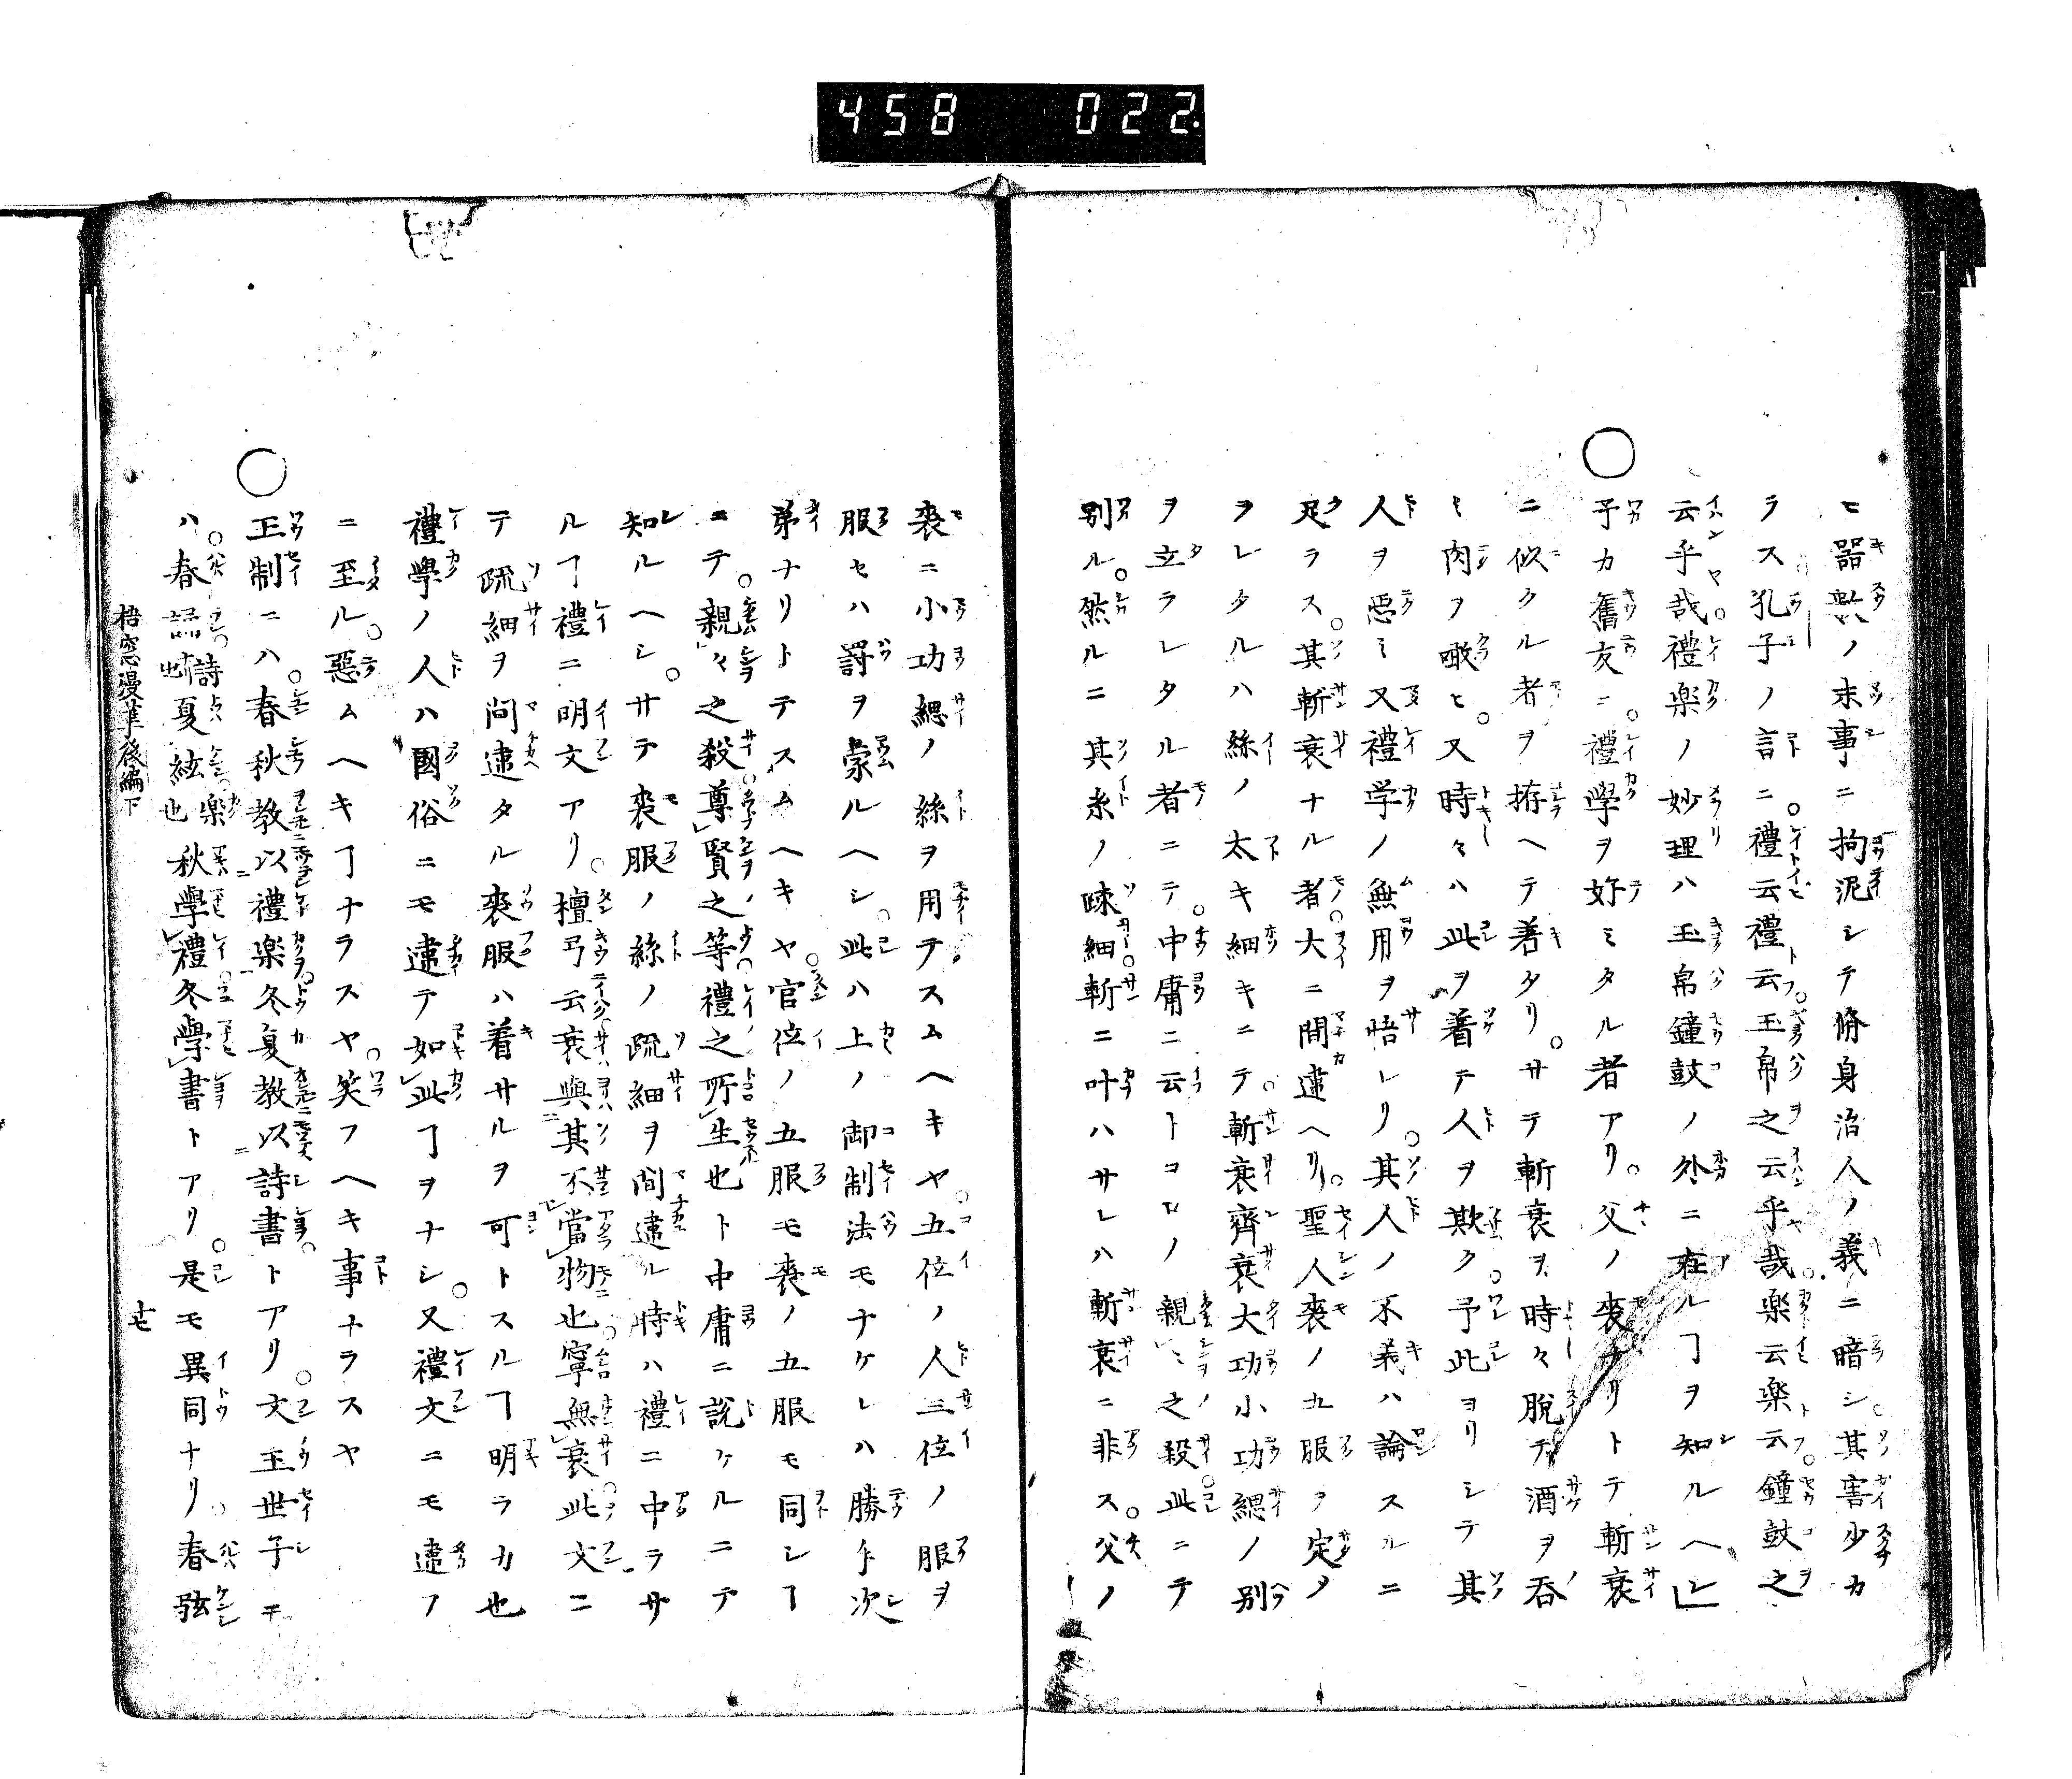 458 022
ヒ器數ノ末事ニ拘泥シテ脩身治人ノ義ニ暗シ。其害少カ
ラス孔子ノ言ニ。禮云禮云。玉帛之云乎哉。樂云樂云。鐘鼓之
云乎哉。禮楽ノ妙理ハ玉帛鐘鼓ノ外ニ在ルヿヲ知ルヘシ」
○予カ舊友ニ。禮學ヲ好ミタル者アリ。父ノ喪ナリトテ斬衰
ニ似タル者ヲ拵ヘテ着タリ。サテ斬衰ヲ時々脱テ酒ヲ吞
ミ肉ヲ噉ヒ。又時々ハ此ヲ着テ人ヲ欺ク。予此ヨリシテ其
人ヲ惡ミ又禮学ノ無用ヲ悟レリ。其人ノ不義ハ論スルニ
足ラス。其斬衰ナル者。大ニ間違ヘリ。聖人喪ノ五服ヲ定タ
ヲレタルハ絲ノ太キ細キニテ。斬衰齊衰大功小功緦ノ別
ヲ立ラレタル者ニテ。中庸ニ云トコロノ親〻之殺。此ニテ
別ル。然ルニ其糸ノ疎細。斬ニ叶ハサレハ斬衰ニ非ス。父ノ
喪ニ小功緦ノ絲ヲ用テスムヘキヤ。五位ノ人三位ノ服ヲ
服セハ罰ヲ蒙ルヘシ。此ハ上ノ御制法モナケレハ勝手次
第ナリトテスムヘキヤ。官位ノ五服モ喪ノ五服モ同シヿ
ニテ。親々之殺。尊賢之等。禮之所生也ト中庸ニ説ケルニテ
知ルヘシ。サテ喪服ノ絲ノ疏細ヲ間違ル時ハ禮ニ中ラサ
ルヿ禮ニ明文アリ。檀弓云衰與其不當物也寧無衰。此文ニ
テ疏細ヲ間違タル喪服ハ着サルヲ可トスルヿ明ラカ也
禮學ノ人ハ國俗ニモ違テ如此ヿヲナシ。又禮文ニモ違フ
ニ至ル。惡ムヘキヿナラスヤ。笑フヘキ事ナラスヤ
○王制ニハ。春秋教以禮楽。冬夏教以詩書。トアリ。文王世子ニ
ハ。春誦。詩也夏絃。楽也秋學禮。冬學書トアリ。是モ異同ナリ。春弦
梧窓漫筆後編下
十七